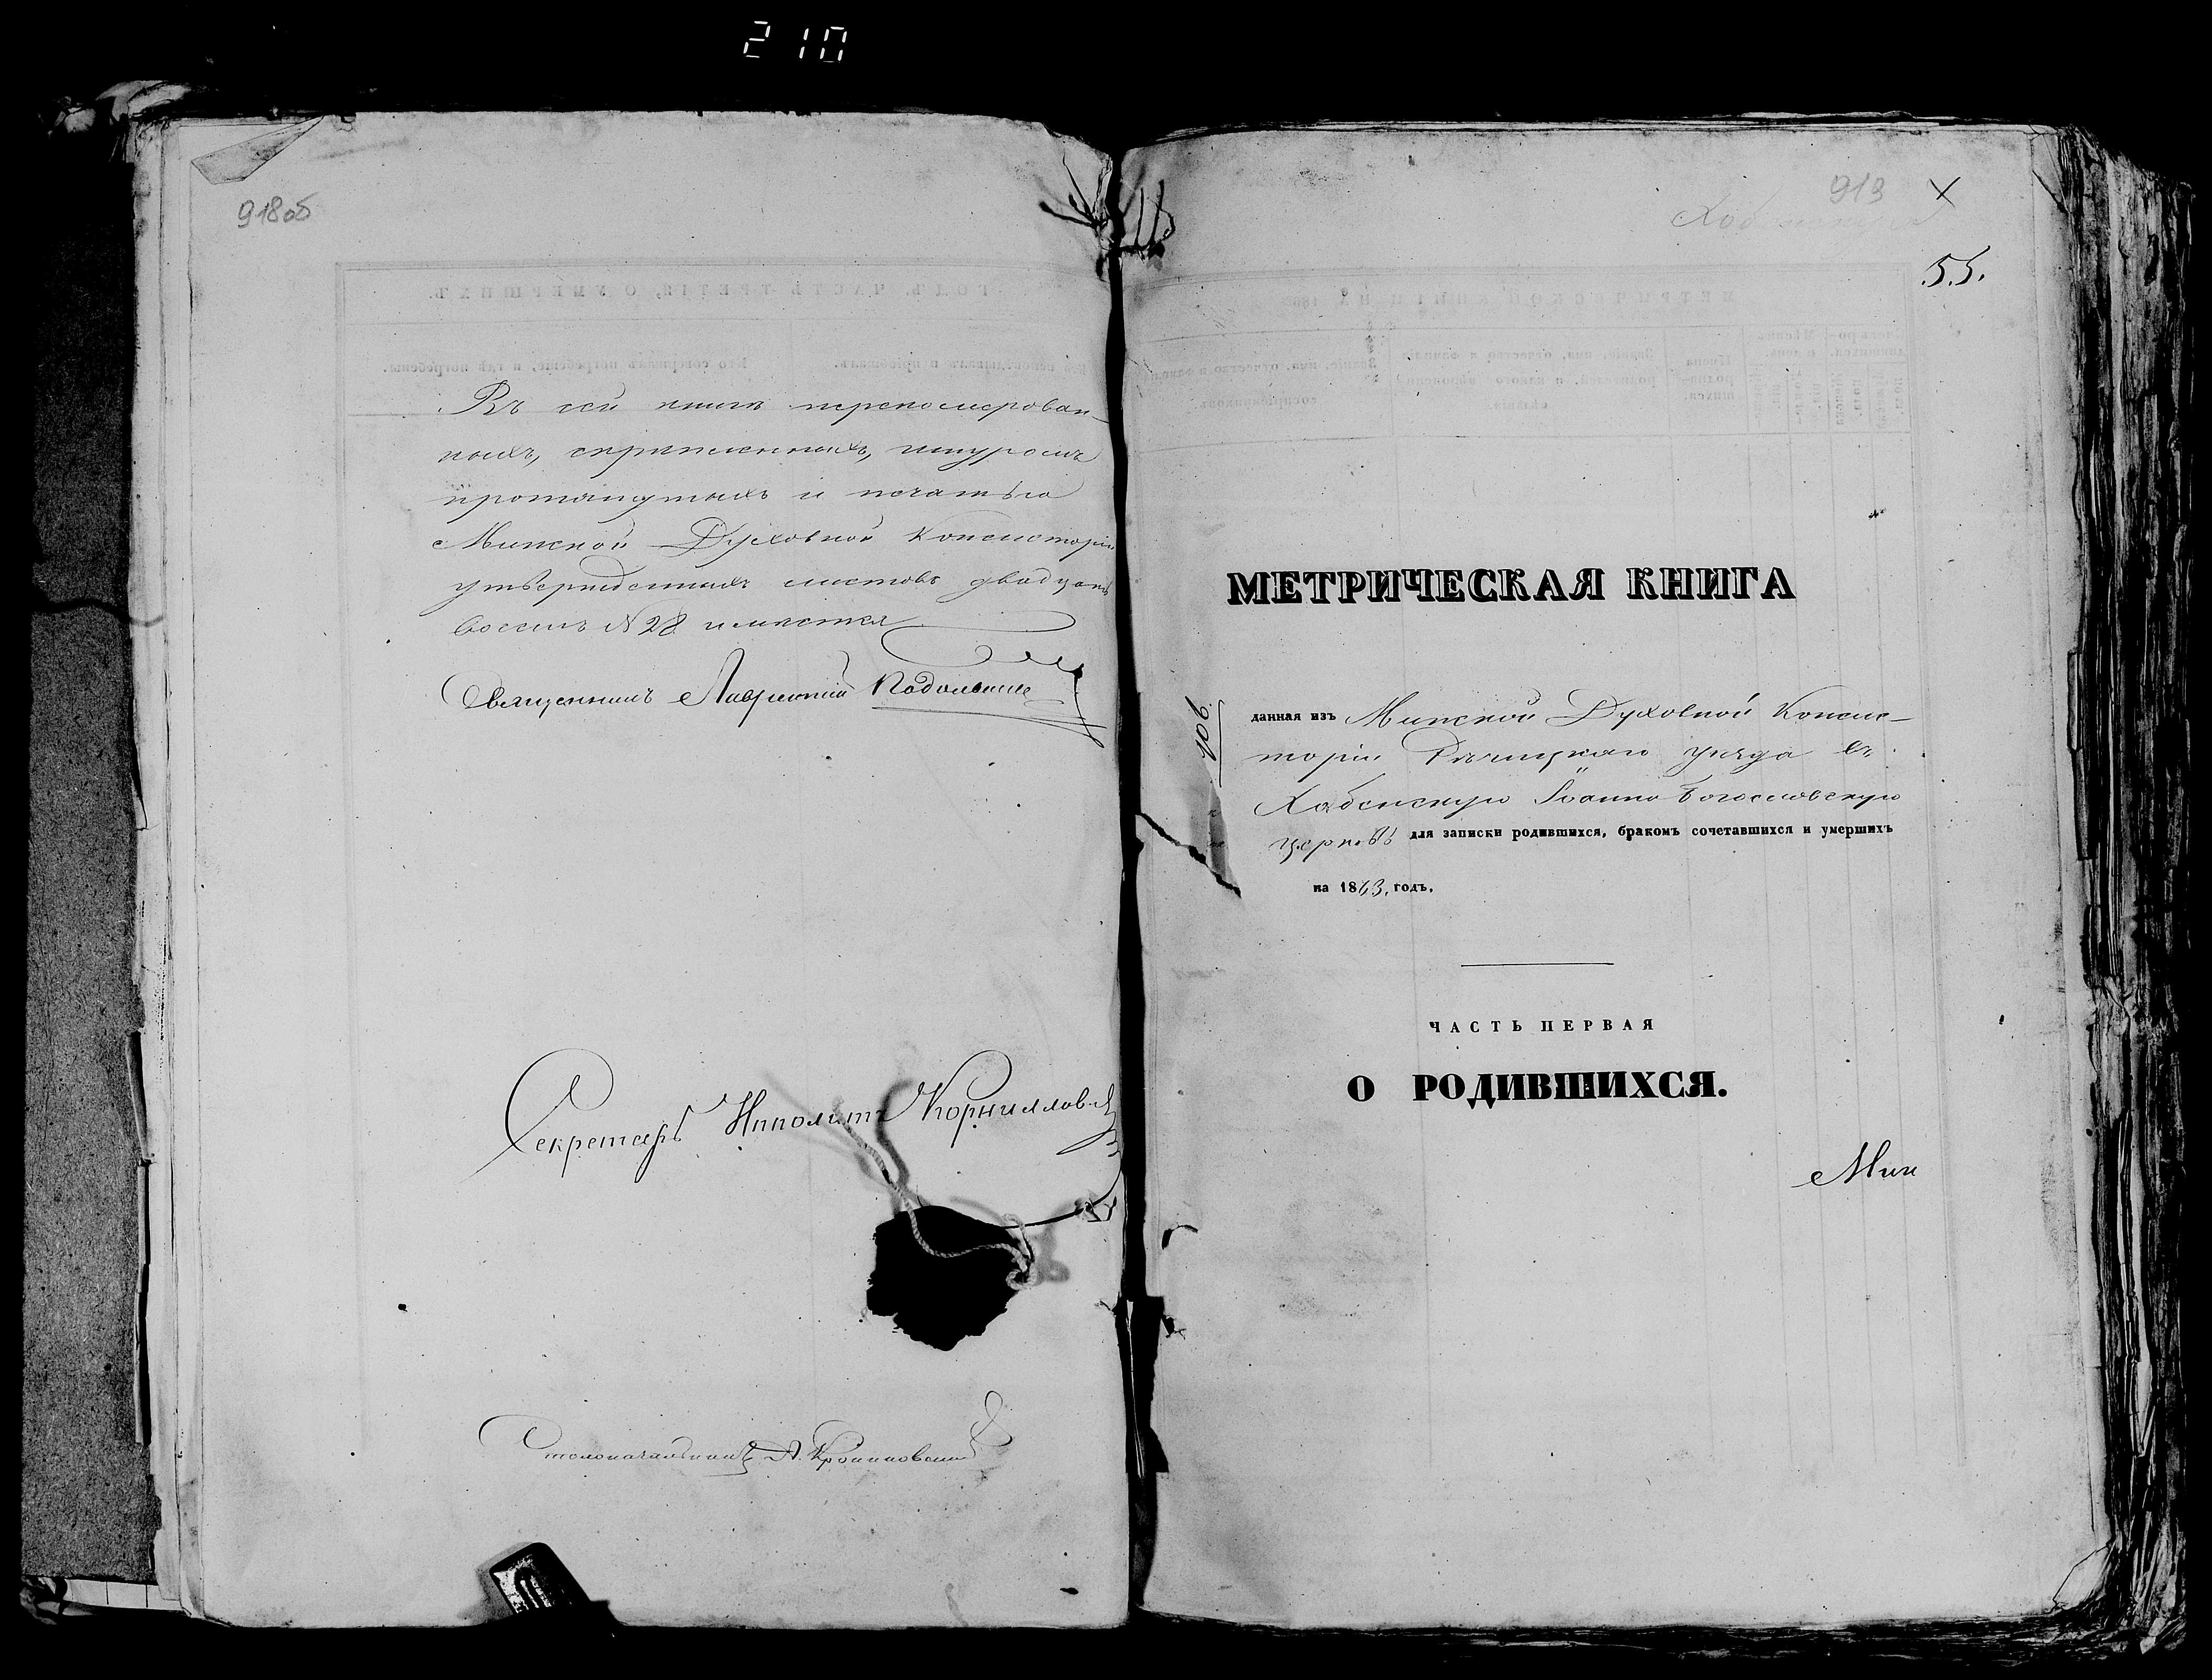 210
918об
Въ сей книгѣ перенумерован-
ныхъ, скрѣпленныхъ, шнуромъ
протянутыхъ и печатью
Минской Духовной Консисторіи
утвержденныхъ листовъ двадцать
восемь № 28 имѣется
Священникъ Лаврентій
Секретарь Ипполитъ
Столоначальникъ А.
919 X
55.
МЕТРИЧЕСКАЯ КНИГА
данная изъ Минской Духовной Консис-
торіи Рѣчицкаго уѣзда въ
Хабенскую Іоанно Богословскую
церковь для записки родившихся, бракомъ сочетавшихся и умершихъ
на 1863. годъ.
ЧАСТЬ ПЕРВАЯ
О РОДИВШИХСЯ.
Мин